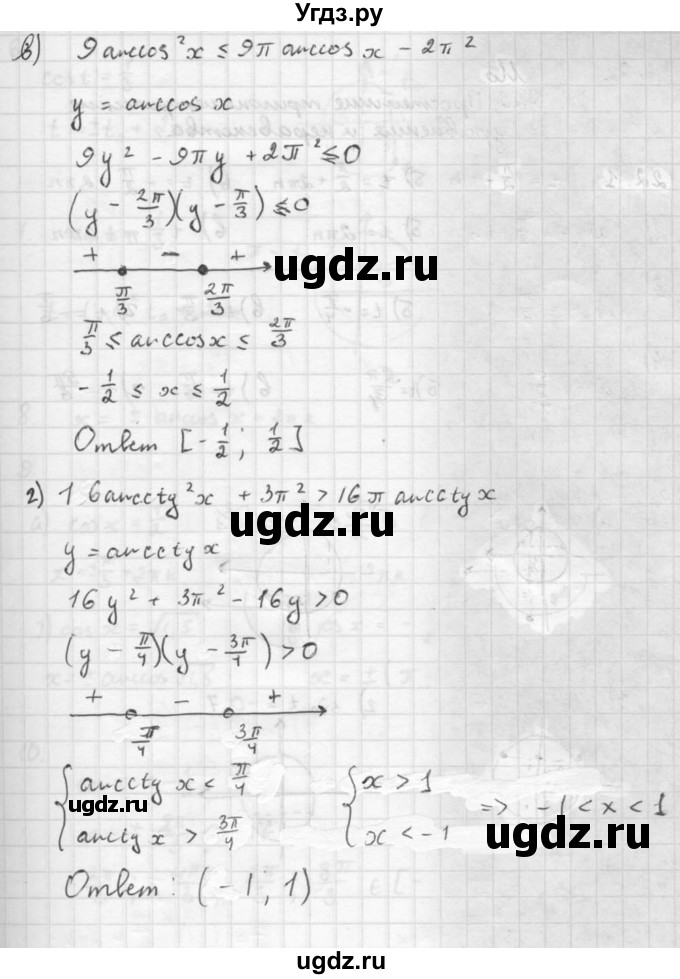 Угдз.ру
в) 9 arccos²x ≤ 9π arccos x − 2π²
y = arccos x
9y² − 9πy + 2π² ≤ 0
(y − 2π/3)(y − π/3) ≤ 0
+ − +
ugdz.ru
π/3 2π/3
π/3 ≤ arccos x ≤ 2π/3
− 1/2 ≤ x ≤ 1/2
Ответ [−1/2; 1/2]
2) 16 arcctg²x + 3π² > 16π arcctg x
ugdz.ru
y = arcctg x
16y² + 3π² − 16y > 0
(y − π/4)(y − 3π/4) > 0
+ − +
π/4 3π/4
{ arcctg x < π/4 { x > 1
ugdz.ru => −1 < x < 1
arctg x > 3π/4 x < −1
ugdz.ru
Ответ: (−1, 1)
ugdz.ru